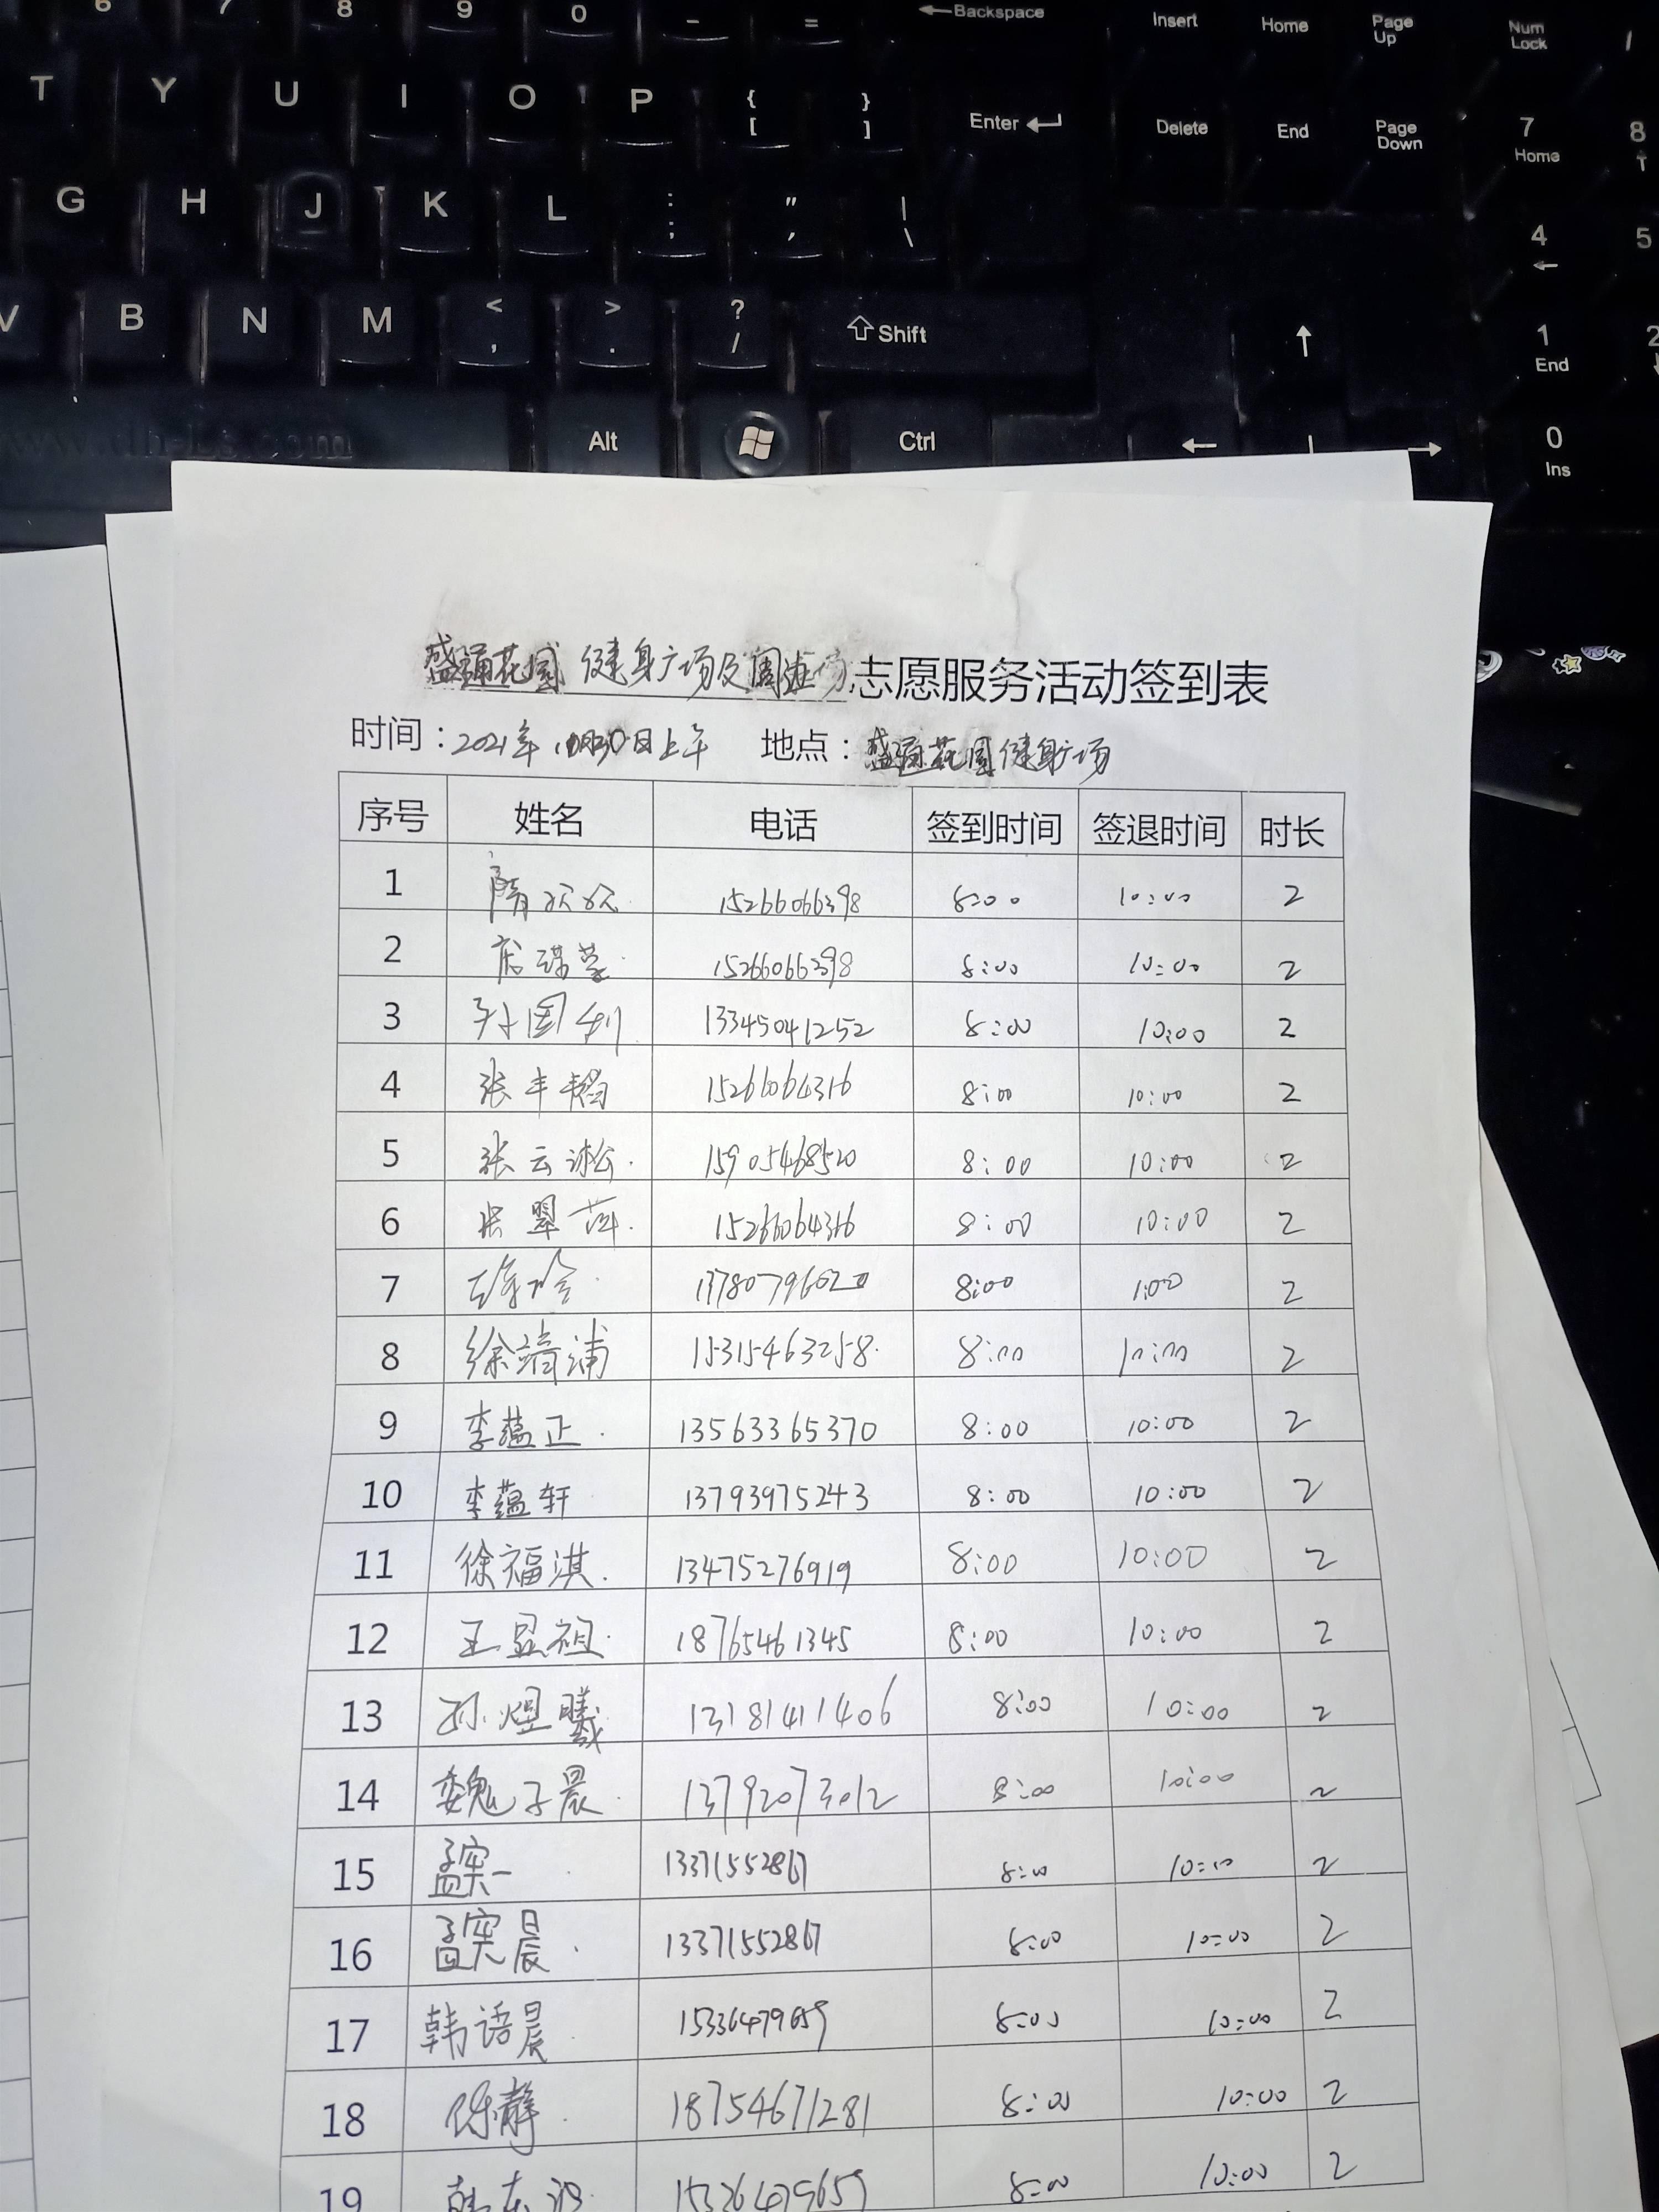 6 7 8 9 0 - = ←Backspace Insert Home Page Up Num Lock /
T Y U I O P { [ } ] Enter Delete End Page Down 7 Home 8
G H J K L : ; " ' | \ 4 ← 5
V B N M < , > . ? / Shift ↑ 1 End 2
Alt Ctrl ← → 0 Ins
盛通花园健身广场及周边志愿服务活动签到表
时间：2021年10月30日上午 地点：盛通花园健身广场
序号 姓名 电话 签到时间 签退时间 时长
1 隋欣欣 15266066398 8:00 10:00 2
2 15266066398 8:00 10:00 2
3 孙国利 13345041252 8:00 10:00 2
4 张丰韬 15266064316 8:00 10:00 2
5 张云淞 15905468520 8:00 10:00 2
6 张翠萍 15266064316 8:00 10:00 2
7 13780796020 8:00 1:00 2
8 徐靖浦 15315463258 8:00 10:00 2
9 李蕴正 13563365370 8:00 10:00 2
10 李蕴轩 13793975243 8:00 10:00 2
11 徐福淇 13475276919 8:00 10:00 2
12 王显祖 18765461345 8:00 10:00 2
13 孙煜曦 13181411406 8:00 10:00 2
14 魏子晨 13792073012 8:00 10:00 2
15 孟实一 13371552867 8:00 10:00 2
16 孟实晨 13371552867 8:00 10:00 2
17 韩语晨 15336479659 8:00 10:00 2
18 陈静 18754671281 8:00 10:00 2
19 8:00 10:00 2